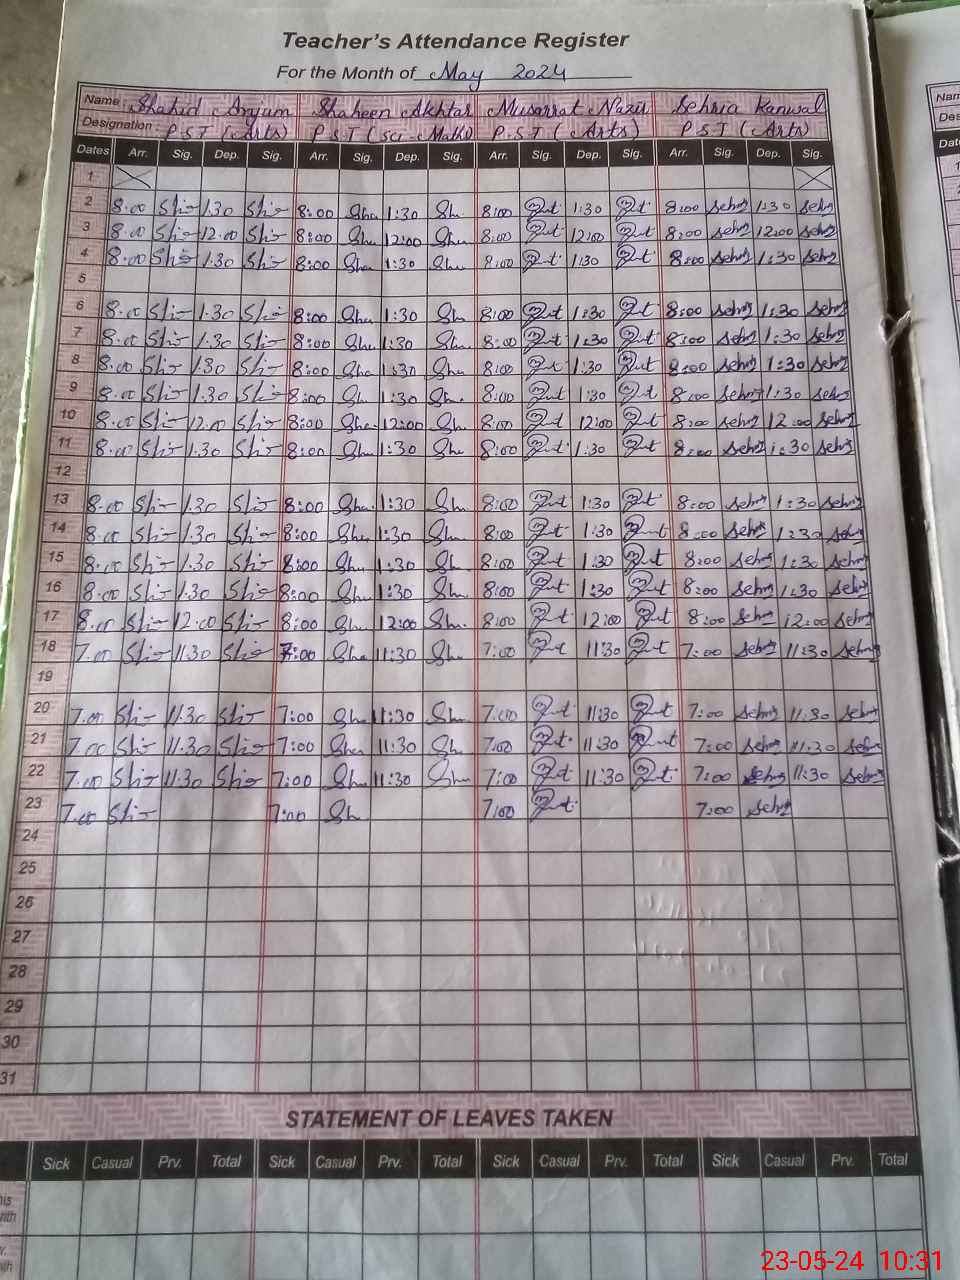 Teacher's Attendance Register
For the Month of May 2024
Name : Shahid Anjum Shaheen Akhtar Musarrat Nazir Sehria Kanwal
Designation : P.S.T (Arts) P.S.T (Sci-Math) P.S.T (Arts) P.S.T (Arts)
Dates Arr. Sig. Dep. Sig. Arr. Sig. Dep. Sig. Arr. Sig. Dep. Sig. Arr. Sig. Dep. Sig.
1
2 8.00 1.30 8:00 Sha 1:30 Sh 8:00 1:30 8:00 Sehr 1:30 Sehr
3 8.00 12.00 8:00 Sha 12:00 Sha 8:00 12:00 8:00 Sehr 12:00 Sehr
4 8.00 1.30 8:00 Sha 1:30 Sha 8:00 1:30 8:00 Sehr 1:30 Sehr
5
6 8.00 1.30 8:00 Sha 1:30 Sha 8:00 1:30 8:00 Sehr 1:30 Sehr
7 8.00 1.30 8:00 Sha 1:30 Sha 8:00 1:30 8:00 Sehr 1:30 Sehr
8 8.00 1.30 8:00 Sha 1:30 Sha 8:00 1:30 8:00 Sehr 1:30 Sehr
9 8.00 1.30 8:00 Sh 1:30 Sh 8:00 1:30 8:00 Sehr 1:30 Sehr
10 8.00 12.00 8:00 Sha 12:00 Sh 8:00 12:00 8:00 Sehr 12:00 Sehr
11 8.00 1.30 8:00 Sha 1:30 Sha 8:00 1:30 8:00 Sehr 1:30 Sehr
12
13 8.00 1.30 8:00 Sha 1:30 Sh 8:00 1:30 8:00 Sehr 1:30 Sehr
14 8.00 1.30 8:00 Sha 1:30 Sh 8:00 1:30 8:00 Sehr 1:30 Sehr
15 8.00 1.30 8:00 Sha 1:30 Sh 8:00 1:30 8:00 Sehr 1:30 Sehr
16 8.00 1.30 8:00 Sha 1:30 Sh 8:00 1:30 8:00 Sehr 1:30 Sehr
17 8.00 12.00 8:00 Sha 12:00 Sh 8:00 12:00 8:00 Sehr 12:00 Sehr
18 7.00 11.30 7:00 Sha 11:30 Sha 7:00 11:30 7:00 Sehr 11:30 Sehr
19
20 7.00 11.30 7:00 Sha 11:30 Sha 7:00 11:30 7:00 Sehr 11:30 Sehr
21 7.00 11.30 7:00 Sha 11:30 Sh 7:00 11:30 7:00 Sehr 11:30 Sehr
22 7.00 11.30 7:00 Sha 11:30 Sha 7:00 11:30 7:00 Sehr 11:30 Sehr
23 7.00 7:00 Sh 7:00 7:00 Sehr
24
25
26
27
28
29
30
31
STATEMENT OF LEAVES TAKEN
Sick Casual Prv. Total Sick Casual Prv. Total Sick Casual Prv. Total Sick Casual Prv. Total
23-05-24 10:31